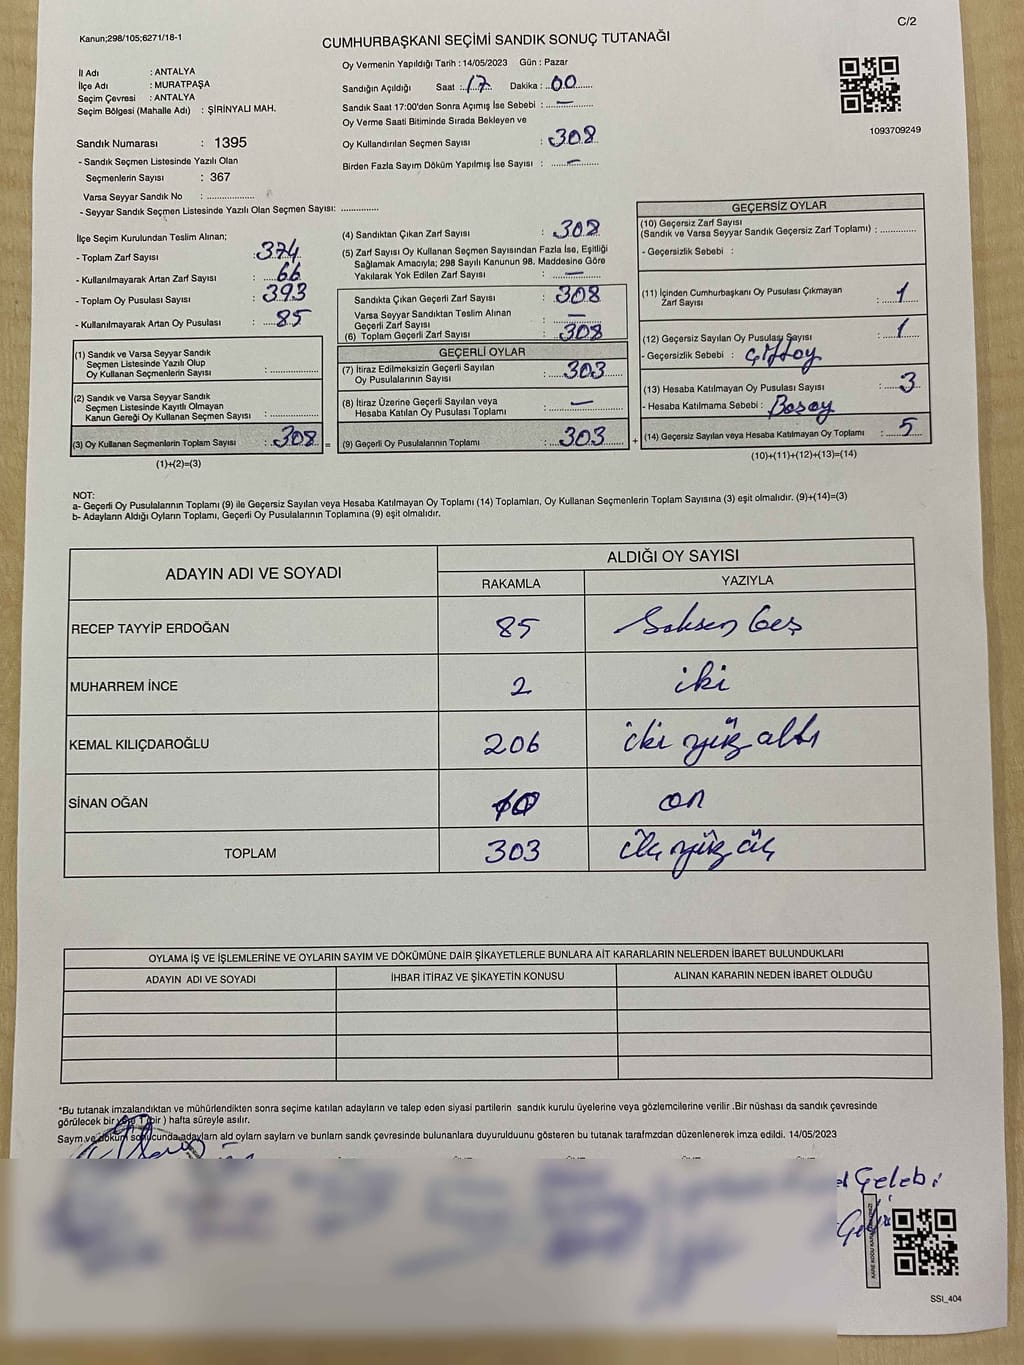 C/2
Kanun;298/105;6271/18-1
CUMHURBAŞKANI SEÇİMİ SANDIK SONUÇ TUTANAĞI
İl Adı : ANTALYA
İlçe Adı : MURATPAŞA
Seçim Çevresi : ANTALYA
Seçim Bölgesi (Mahalle Adı) : ŞİRİNYALI MAH.
Sandık Numarası : 1395
- Sandık Seçmen Listesinde Yazılı Olan
Seçmenlerin Sayısı : 367
Varsa Seyyar Sandık No : ..................
- Seyyar Sandık Seçmen Listesinde Yazılı Olan Seçmen Sayısı: ..............
Oy Vermenin Yapıldığı Tarih : 14/05/2023 Gün : Pazar
Sandığın Açıldığı Saat : 17 Dakika : 00
Sandık Saat 17:00'den Sonra Açımış İse Sebebi : —
Oy Verme Saati Bitiminde Sırada Bekleyen ve
Oy Kullandırılan Seçmen Sayısı : 308
Birden Fazla Sayım Döküm Yapılmış İse Sayısı : —
1093709249
İlçe Seçim Kurulundan Teslim Alınan;
- Toplam Zarf Sayısı : 374
- Kullanılmayarak Artan Zarf Sayısı : 66
- Toplam Oy Pusulası Sayısı : 393
- Kullanılmayarak Artan Oy Pusulası : 85
(1) Sandık ve Varsa Seyyar Sandık
Seçmen Listesinde Yazılı Olup
Oy Kullanan Seçmenlerin Sayısı : ..............
(2) Sandık ve Varsa Seyyar Sandık
Seçmen Listesinde Kayıtlı Olmayan
Kanun Gereği Oy Kullanan Seçmen Sayısı : ..............
(3) Oy Kullanan Seçmenlerin Toplam Sayısı : 308 =
(1)+(2)=(3)
(4) Sandıktan Çıkan Zarf Sayısı : 308
(5) Zarf Sayısı Oy Kullanan Seçmen Sayısından Fazla İse, Eşitliği
Sağlamak Amacıyla; 298 Sayılı Kanunun 98. Maddesine Göre
Yakılarak Yok Edilen Zarf Sayısı : —
Sandıkta Çıkan Geçerli Zarf Sayısı : 308
Varsa Seyyar Sandıktan Teslim Alınan
Geçerli Zarf Sayısı : —
(6) Toplam Geçerli Zarf Sayısı : 308
GEÇERLİ OYLAR
(7) İtiraz Edilmeksizin Geçerli Sayılan
Oy Pusulalarının Sayısı : 303
(8) İtiraz Üzerine Geçerli Sayılan veya
Hesaba Katılan Oy Pusulası Toplamı : —
(9) Geçerli Oy Pusulalarının Toplamı : 303 +
GEÇERSİZ OYLAR
(10) Geçersiz Zarf Sayısı
(Sandık ve Varsa Seyyar Sandık Geçersiz Zarf Toplamı) : ............
- Geçersizlik Sebebi :
(11) İçinden Cumhurbaşkanı Oy Pusulası Çıkmayan
Zarf Sayısı : 1
(12) Geçersiz Sayılan Oy Pusulası Sayısı : 1
- Geçersizlik Sebebi : Çift oy
(13) Hesaba Katılmayan Oy Pusulası Sayısı : 3
- Hesaba Katılmama Sebebi : Boş oy
(14) Geçersiz Sayılan veya Hesaba Katılmayan Oy Toplamı : 5
(10)+(11)+(12)+(13)=(14)
NOT:
a- Geçerli Oy Pusulalarının Toplamı (9) ile Geçersiz Sayılan veya Hesaba Katılmayan Oy Toplamı (14) Toplamları, Oy Kullanan Seçmenlerin Toplam Sayısına (3) eşit olmalıdır. (9)+(14)=(3)
b- Adayların Aldığı Oyların Toplamı, Geçerli Oy Pusulalarının Toplamına (9) eşit olmalıdır.
ADAYIN ADI VE SOYADI ALDIĞI OY SAYISI
RAKAMLA YAZIYLA
RECEP TAYYİP ERDOĞAN 85 Seksen beş
MUHARREM İNCE 2 iki
KEMAL KILIÇDAROĞLU 206 iki yüz altı
SİNAN OĞAN 10 on
TOPLAM 303 üç yüz üç
OYLAMA İŞ VE İŞLEMLERİNE VE OYLARIN SAYIM VE DÖKÜMÜNE DAİR ŞİKAYETLERLE BUNLARA AİT KARARLARIN NELERDEN İBARET BULUNDUKLARI
ADAYIN ADI VE SOYADI İHBAR İTİRAZ VE ŞİKAYETİN KONUSU ALINAN KARARIN NEDEN İBARET OLDUĞU
*Bu tutanak imzalandıktan ve mühürlendikten sonra seçime katılan adayların ve talep eden siyasi partilerin sandık kurulu üyelerine veya gözlemcilerine verilir .Bir nüshası da sandık çevresinde
görülecek bir yere 1 (bir ) hafta süreyle asılır.
Saym ve döküm sonucunda adaylam ald oylam saylam ve bunlam sandık çevresinde bulunanlara duyurulduunu gösteren bu tutanak tarafmzdan düzenlenerek imza edildi. 14/05/2023
Çelebi
SSI_404